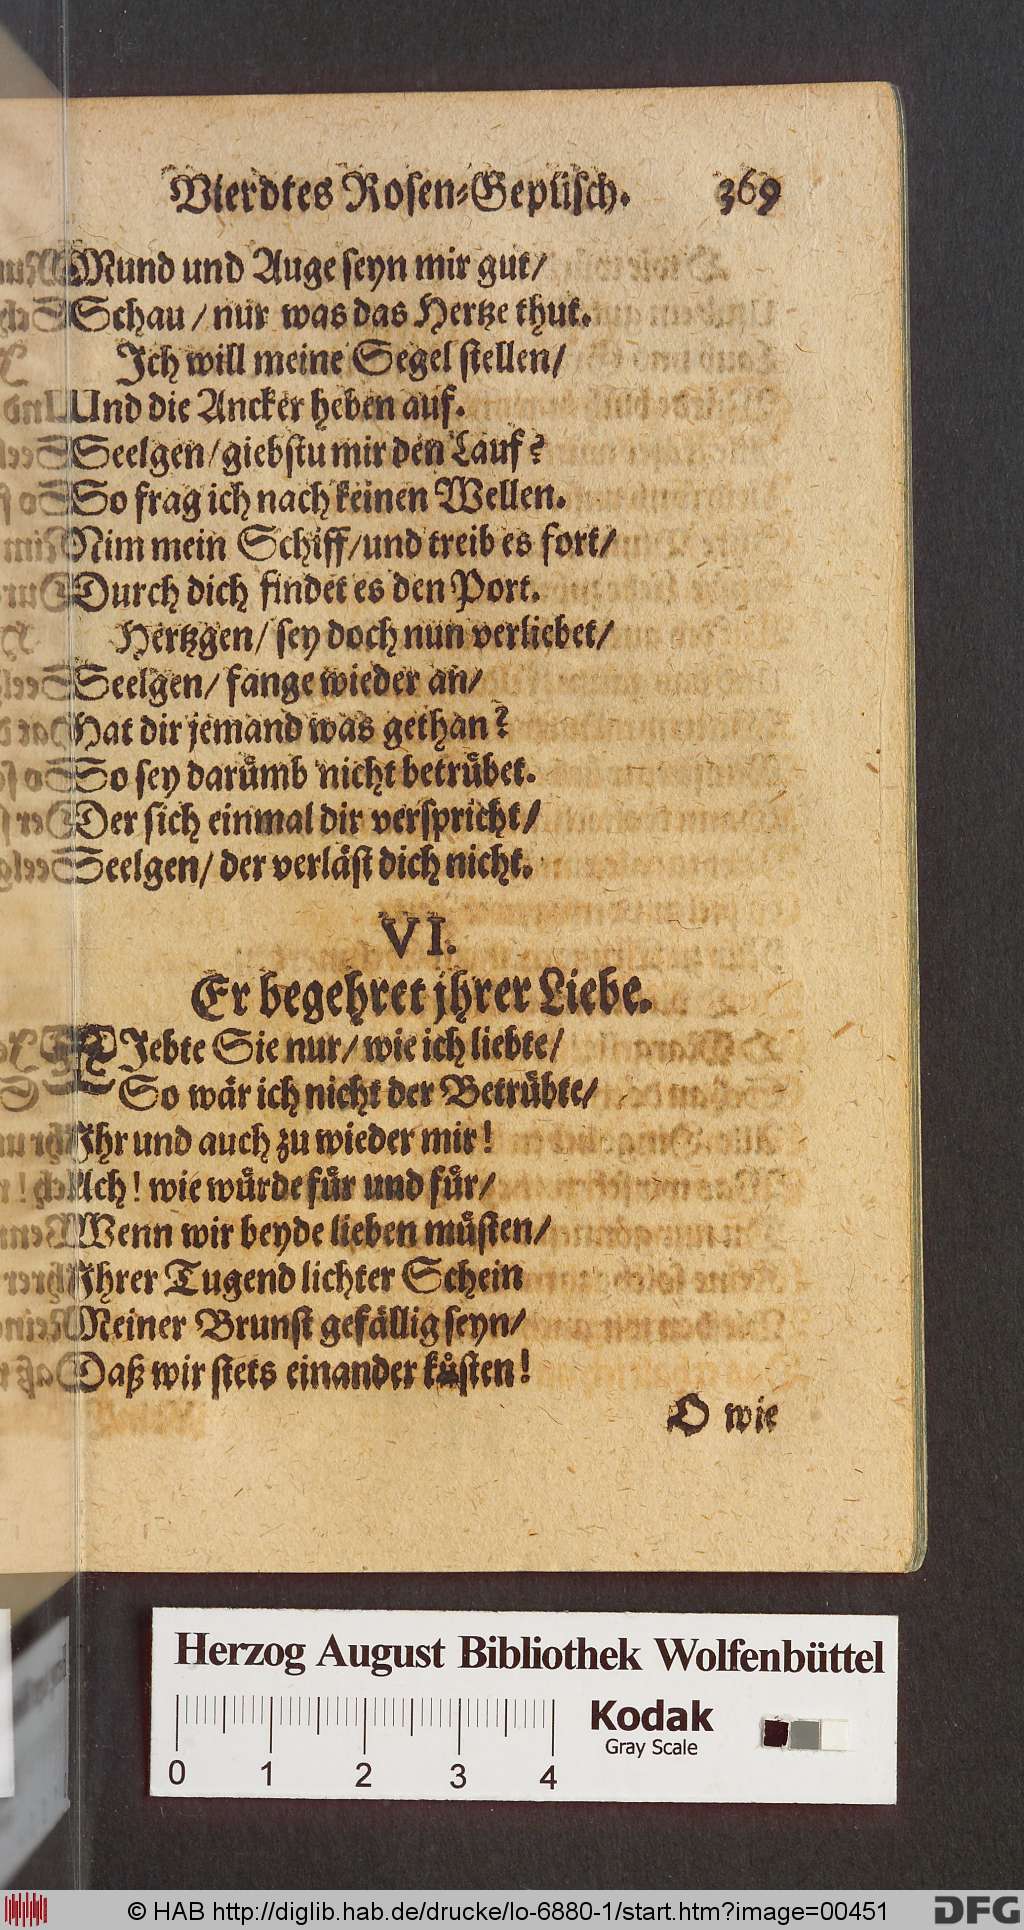 Vierdtes Rosen-Gepüsch. 369
Mund und Auge seyn mir gut/
Schau / nur was das Hertze thut.
Ich will meine Segel stellen/
Und die Ancker heben auf.
Seelgen/ giebstu mir den Lauf?
So frag ich nach keinen Wellen.
Nim mein Schiff/ und treib es fort/
Durch dich findet es den Port.
Hertzgen/ sey doch nun verliebet/
Seelgen/ fange wieder an/
Hat dir jemand was gethan?
So sey darümb nicht betrübet.
Der sich einmal dir verspricht/
Seelgen/ der verläst dich nicht.
VI.
Er begehret jhrer Liebe.
LJebte Sie nur/ wie ich liebte/
So wär ich nicht der Betrübte/
Ihr und auch zu wieder mir!
Ach! wie würde für und für/
Wenn wir beyde lieben müsten/
Ihrer Tugend lichter Schein
Meiner Brunst gefällig seyn/
Daß wir stets einander küsten!
O wie
Herzog August Bibliothek Wolfenbüttel
Kodak
Gray Scale
0 1 2 3 4
© HAB http://diglib.hab.de/drucke/lo-6880-1/start.htm?image=00451
DFG